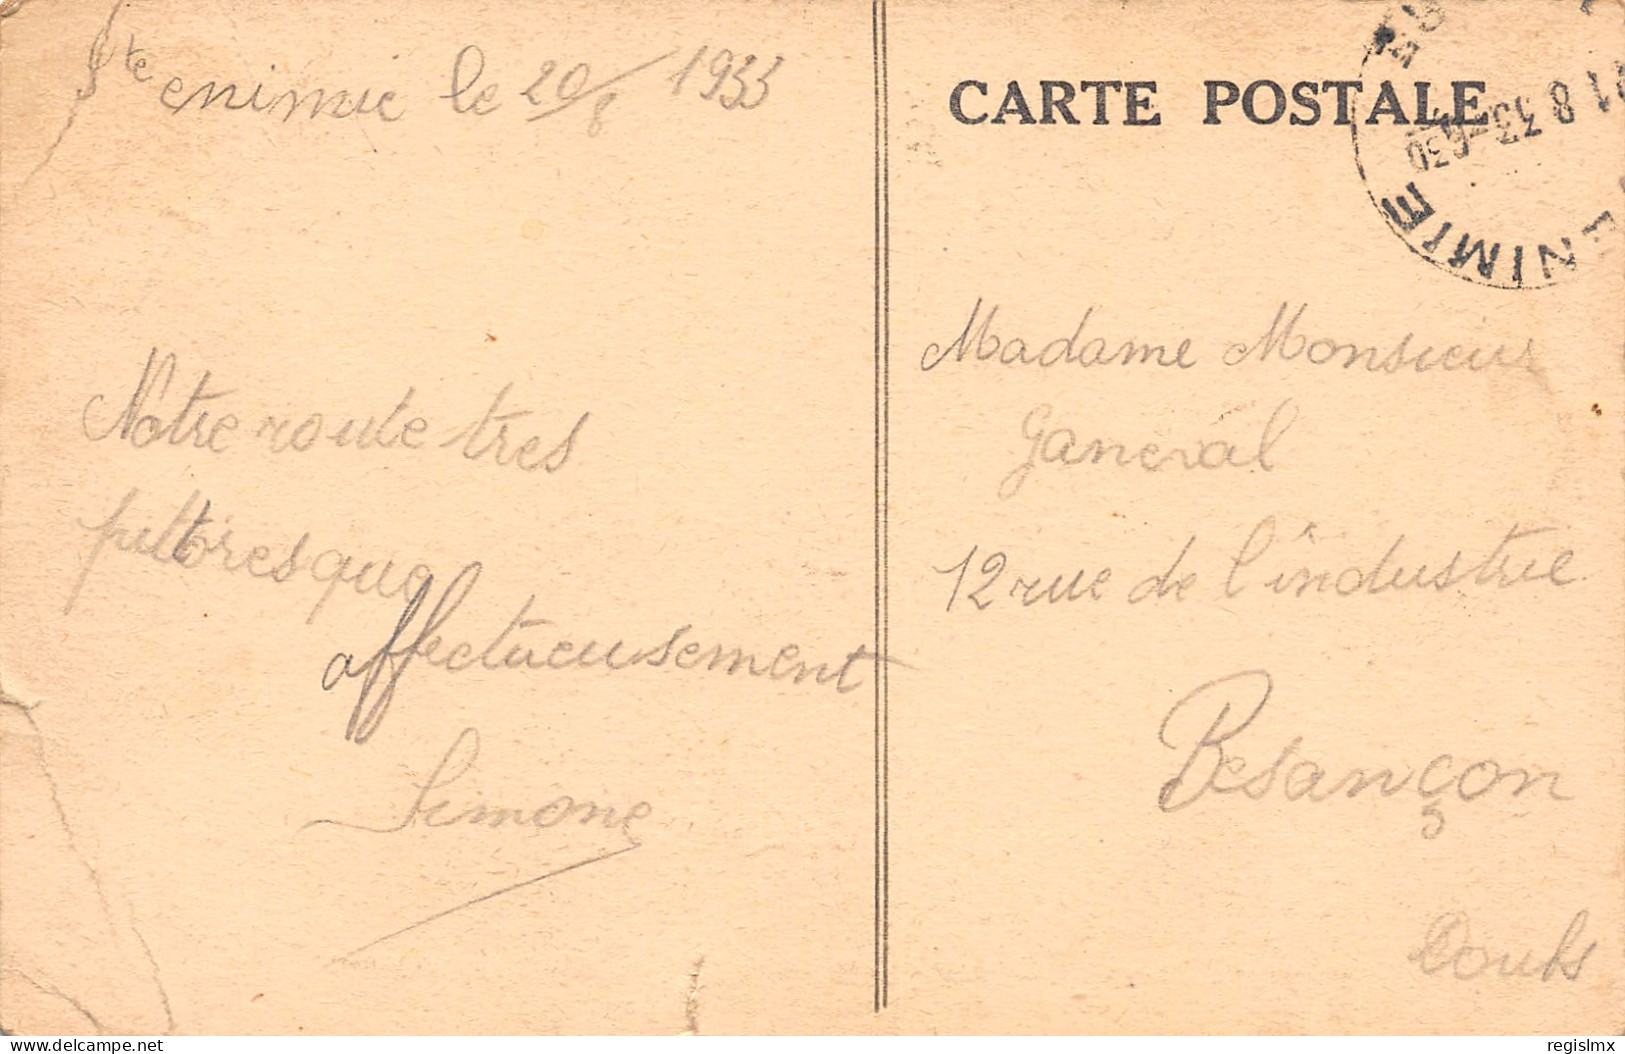 Ste enimie le 20/8 1933
Notre route tres
pittoresque
affectueusement
Simone
CARTE POSTALE
21 8 33
630
ENIMIE
Madame Monsieur
Ganeval
12 rue de l'industrie
Besançon
Doubs
delcampe.net
regislmx